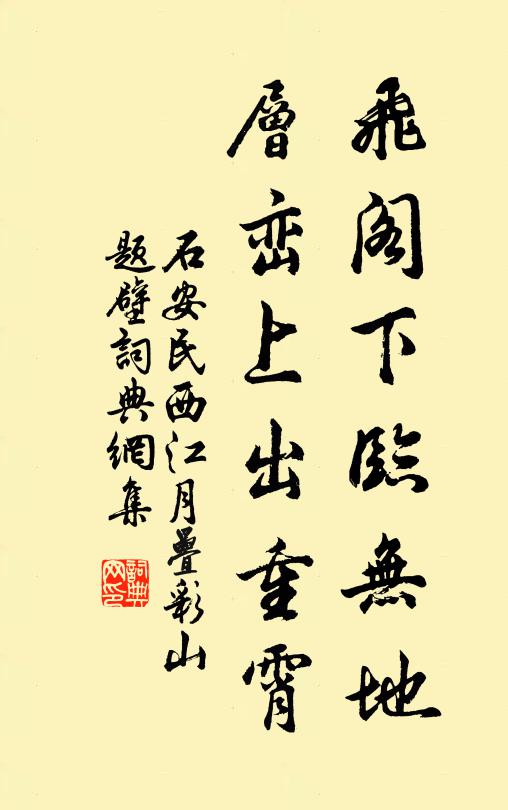 飛閣下臨無地
層峦上出重霄
石安民西江月疊彩山
題壁詞典網集
詞典网印